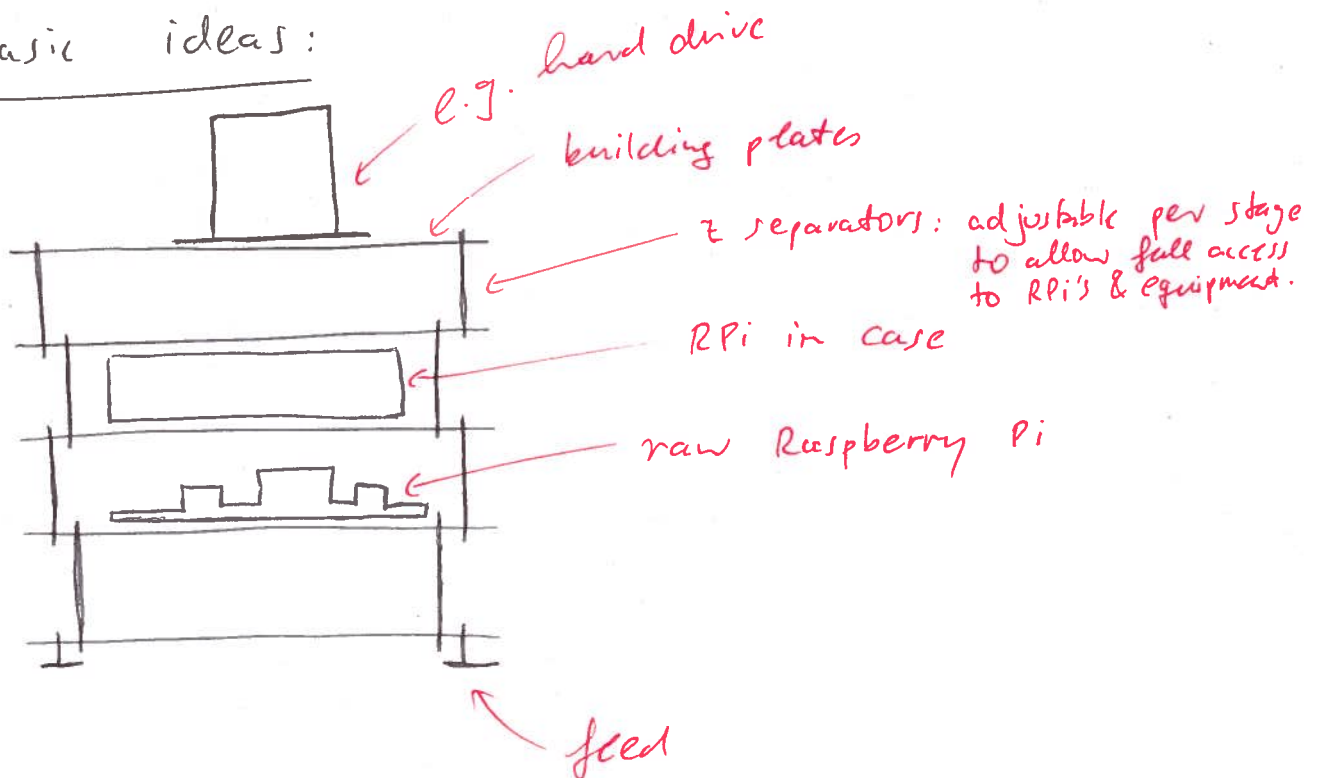 asic ideas:
e.g. hard drive
building plates
z separators: adjustable per stage
to allow full access
to RPi's & equipment.
RPi in case
raw Raspberry Pi
feed